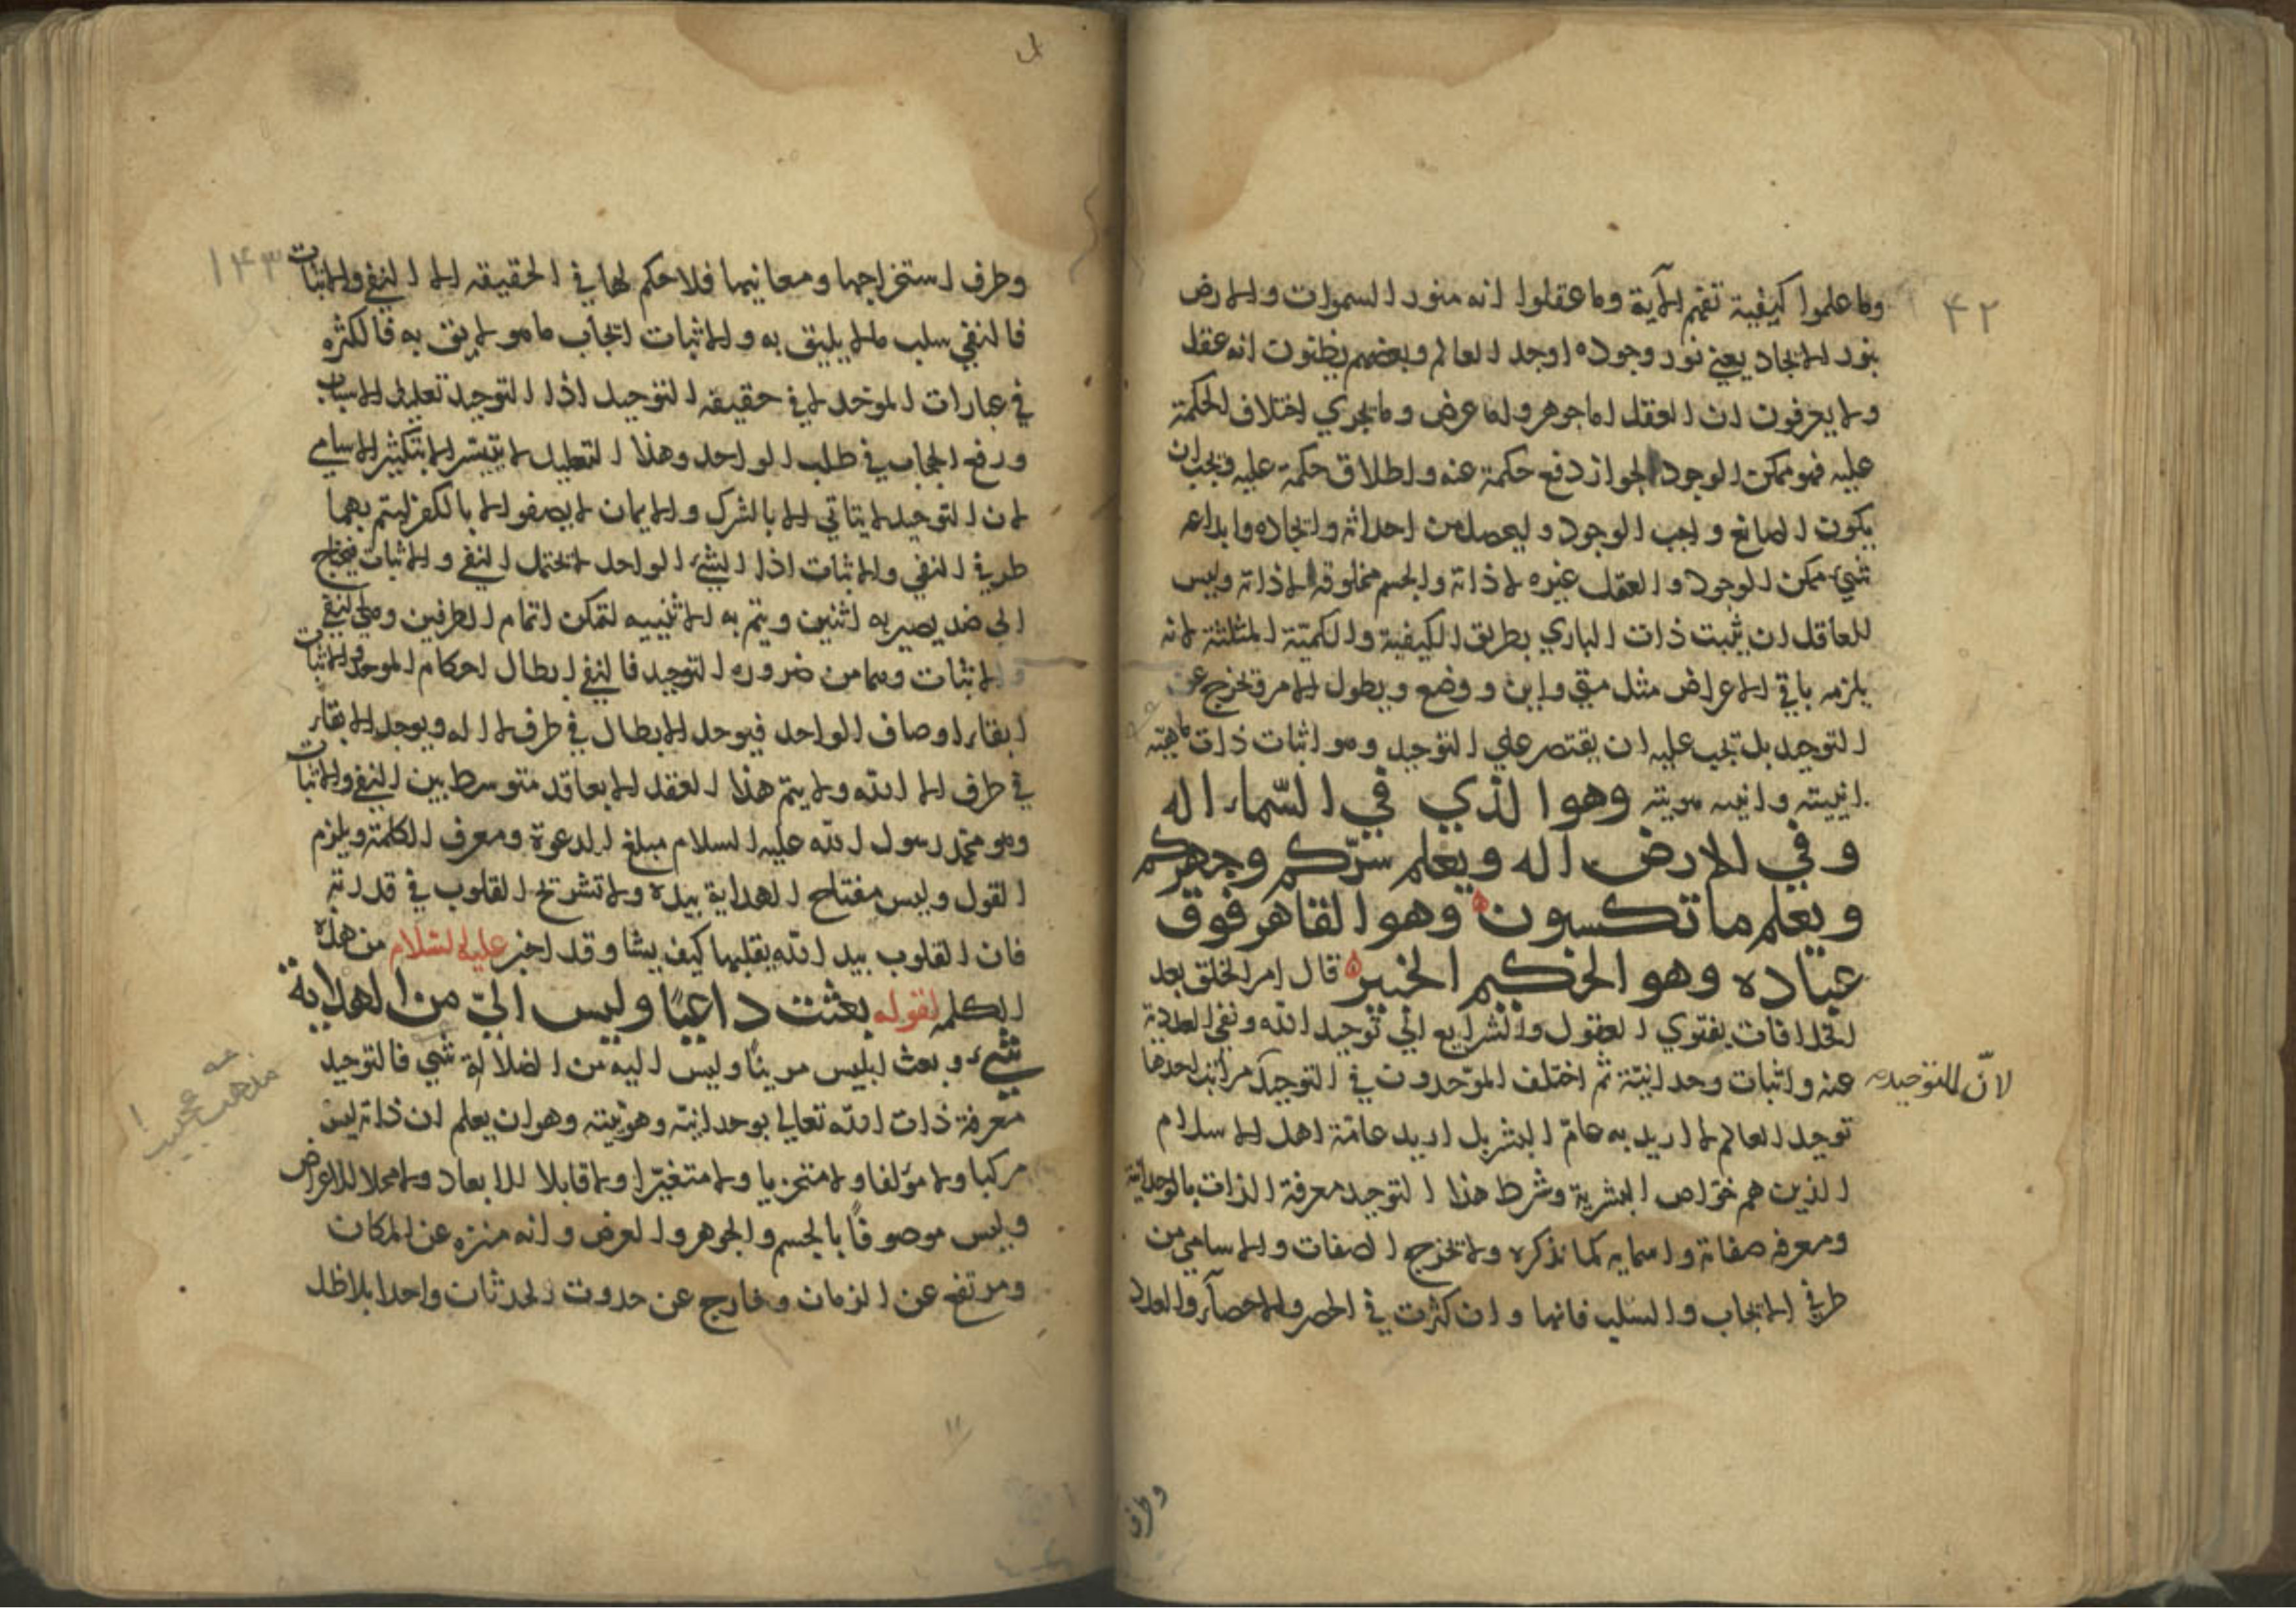 ٤٢
وما علموا كيفية تفهم الآية وما عقلوا انه منور السموات والارض
بنور الايجاد يعني نور وجوده اوجد العالم وبعضهم يظنون انه عقل
ولا يعرفون ان العقل اما جوهر واما عرض وما يجري اختلاف الحكمة
عليه فهو ممكن الوجود لجواز دفع حكمة عنه واطلاق حكمة عليه فيجب ان
يكون الصانع واجب الوجود وليحصل من احداثه وايجاده وابداعه
شيء ممكن الوجود والعقل غيره لا ذاته والجسم مخلوقه لا ذاته وليس
للعاقل ان يثبت ذات الباري بطريق الكيفية والكمية المثلثة لانه
يلزمه باقي الاعراض مثل متى واين ووضع ويطول الامر فيخرج عن
التوحيد بل تجب عليه ان يقتصر علي التوحيد وهو اثبات ذات ماهيته
انيته وانيته هويته وهوا لذي في السماء اله
وفي الارض اله ويعلم سركم وجهركم
ويعلم ما تكسبون وهو القاهر فوق
عباده وهو الحكيم الخبير قال امر الخلق بعد
الخلافات بفتوي العقول والشرايع الي توحيد الله ونفي العددية
عنه واثبات وحدانيته ثم اختلف الموحدون في التوحيد مراتب احدها
لانّ للتوحيد
توحيد العالم لا اريد به عامة البشر بل اريد عامة اهل الاسلام
الذين هم خواص البشرية وشرط هذا التوحيد معرفة الذات بالوحدانية
ومعرفة صفاته واسمايه كما نذكره ولا تخرج الصفات والاسامي من
طرفي الايجاب والسلب فانها وان كثرت في الحصر والاحصاء والعدد
وطرف
١٤٣
وطرف استخراجها ومعانيها فلا حكم لها في الحقيقه الا النفي والاثبات
فالنفي سلب ما لا يليق به والاثبات ايجاب ما هو لايق به فالكثره
في عبارات الموحد لا في حقيقه التوحيد اذا التوحيد تعليل الاسباب
ورفع الحجاب في طلب الواحد وهذا التعليل لا يتيسر الا بتكثير الاسامي
لان التوحيد لا يتاتي الا بالشرك والايمان لا يصفو الا بالكفر ليتم بهما
طريق النفي والاثبات اذا الشيء الواحد لا يحتمل النفي والاثبات فيحتاج
الي ضد يصير به اثنين ويتم به الاثنينيه لتمكن اتمام الطرفين وهي النفي
والاثبات وهما من ضروره التوحيد فالنفي ابطال احكام الموحد والاثبات
ابقاء اوصاف الواحد فيوجد الابطال في طرف لا اله ويوجد الابقاء
في طرف الا الله ولا يتم هذا العقد الا بعاقد متوسط بين النفي والاثبات
وهو محمد رسول الله عليه السلام مبلغ الدعوة ومعرف الكلمة ويلزم
القول وليس مفتاح الهداية بيده ولا تشرح القلوب في قدرته
فان القلوب بيد الله يقلبها كيف يشا وقد اخبر عليه السلام من هذه
الكلمه لقوله بعثت داعيًا وليس اليّ من الهداية
شيء وبعث ابليس مزينًا وليس اليه من الضلالة شي فالتوحيد
معرفة ذات الله تعالي بوحدانيته وهويته وهو ان يعلم ان ذاته ليس
مركبا ولا مؤلفا ولا متجزيا ولا متغيّرا ولا قابلا للابعاد ولا محلا للاعراض
وليس موصوفًا بالجسم والجوهر والعرض وانه منزه عن المكان
ومرتفع عن الزمان وخارج عن حدوث الحدثان واحدا بلا ظل
مذهب عجيب